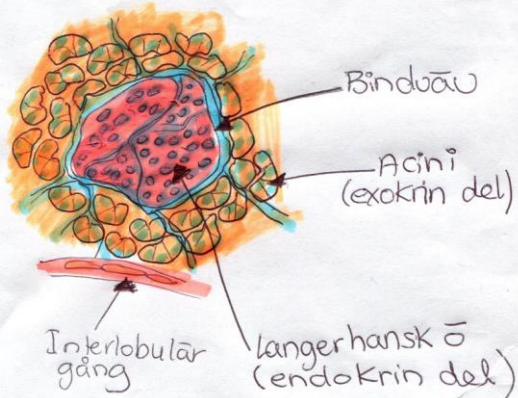 Bindväv
Acini
(exokrin del)
Interlobulär
gång
Langerhansk ö
(endokrin del)